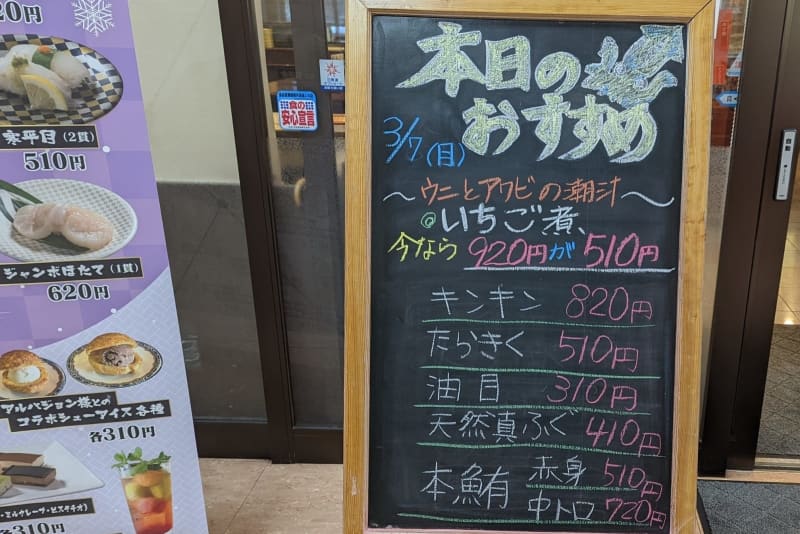 20円
寒平目(2貫)
510円
ジャンボほたて(1貫)
620円
アルパジョン様との
コラボシューアイス各種
各310円
・ミルクレープ・ピスタチオ)
各310円
食の
安心宣言
本日の
おすすめ
3/7(日)
〜ウニとアワビの潮汁〜
@いちご煮、
今なら 920円が510円
キンキン 820円
たらきく 510円
油目 310円
天然真ふぐ 410円
本鮪 赤身 510円
中トロ 720円
自動